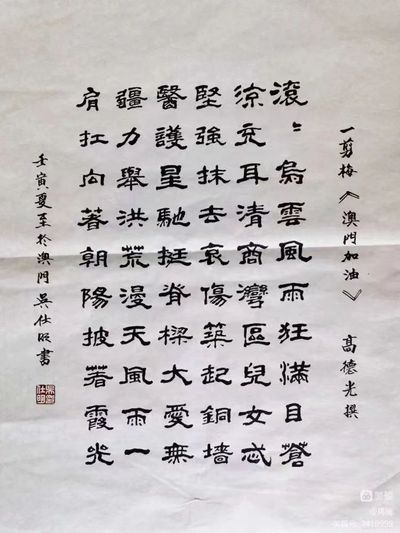 一剪梅《澳門加油》 高德光撰
滾〻烏雲風雨狂滿目蒼
涼充耳清商灣區兒女忒
堅強抹去哀傷築起銅墻
醫護星馳挺脊樑大愛無
疆力舉洪荒漫天風雨一
肩扛向著朝陽披著霞光
壬寅夏至於澳門吳仕明書
美篇